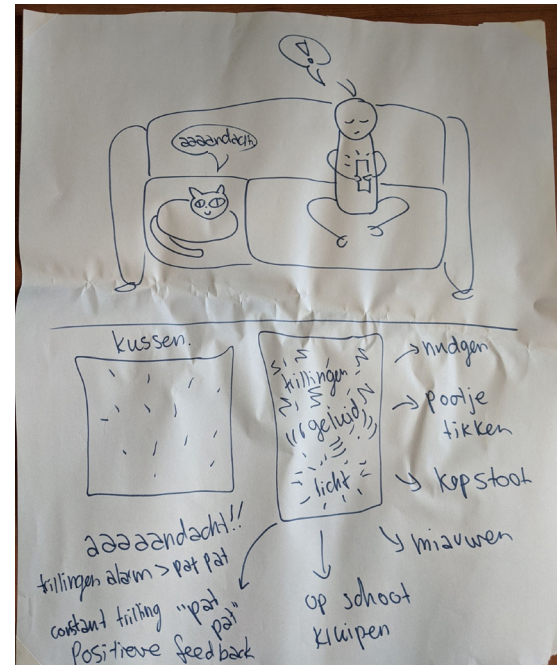 aaaandacht
kussen.
trillingen
geluid
licht
nudgen
pootje
tikken
kopstoot
miauwen
op schoot
kruipen
aaaaandacht!!
trillingen alarm > pat pat
constant trilling "pat
pat"
Positieve feedback